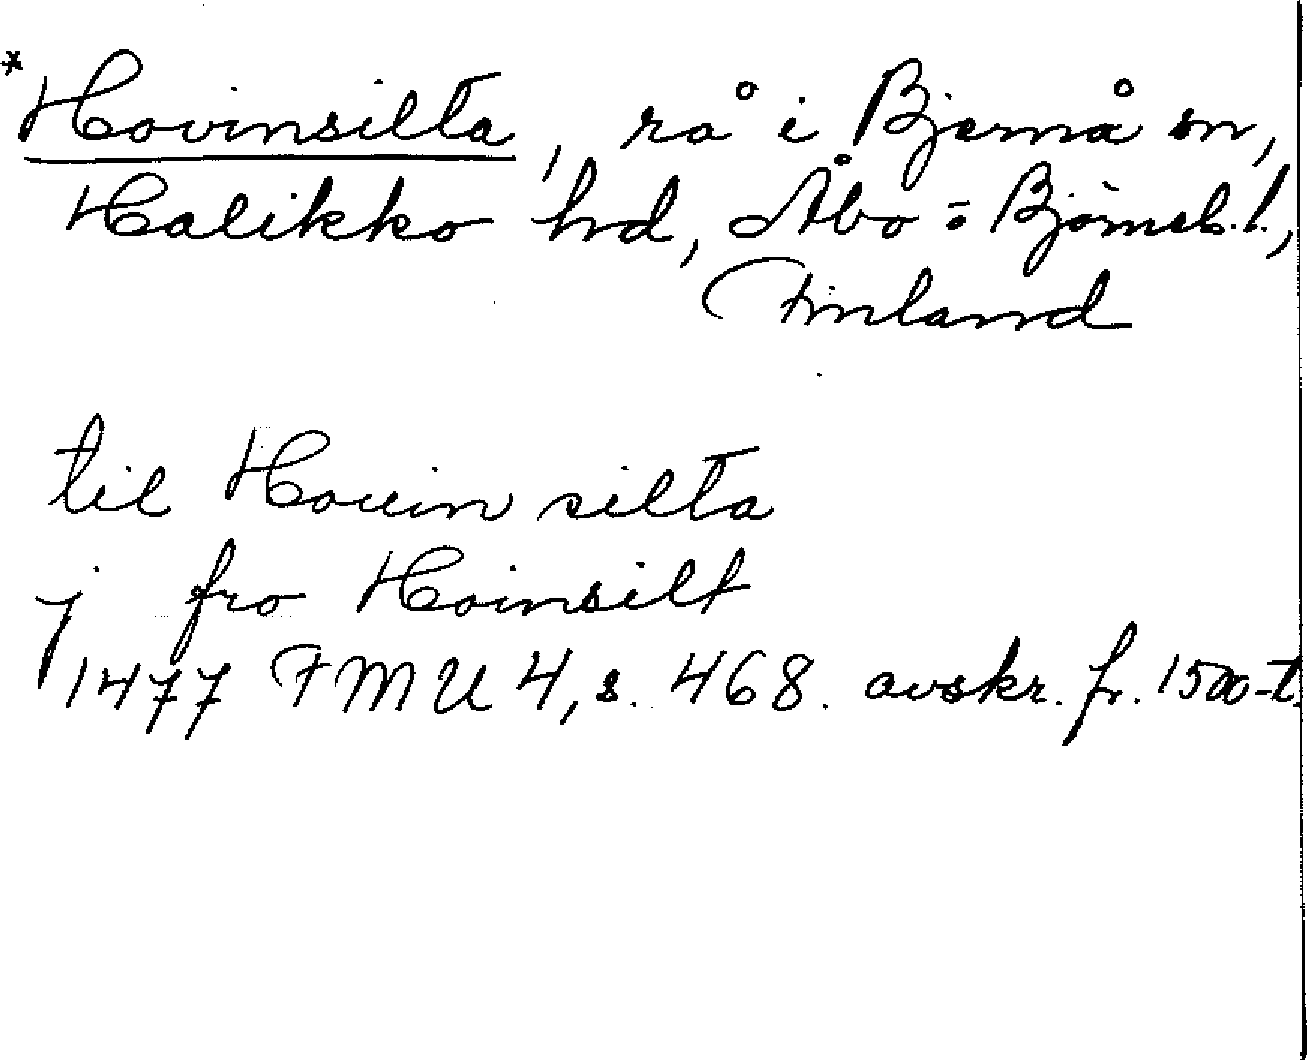 *Hovinsilta, rå i Bjernå sn,
Halikko hd, Åbo = Björneb. l.,
Finland
til Houin silta
j fro Hoinsilt
1477 FMU 4, s. 468. avskr. fr. 1500-t.